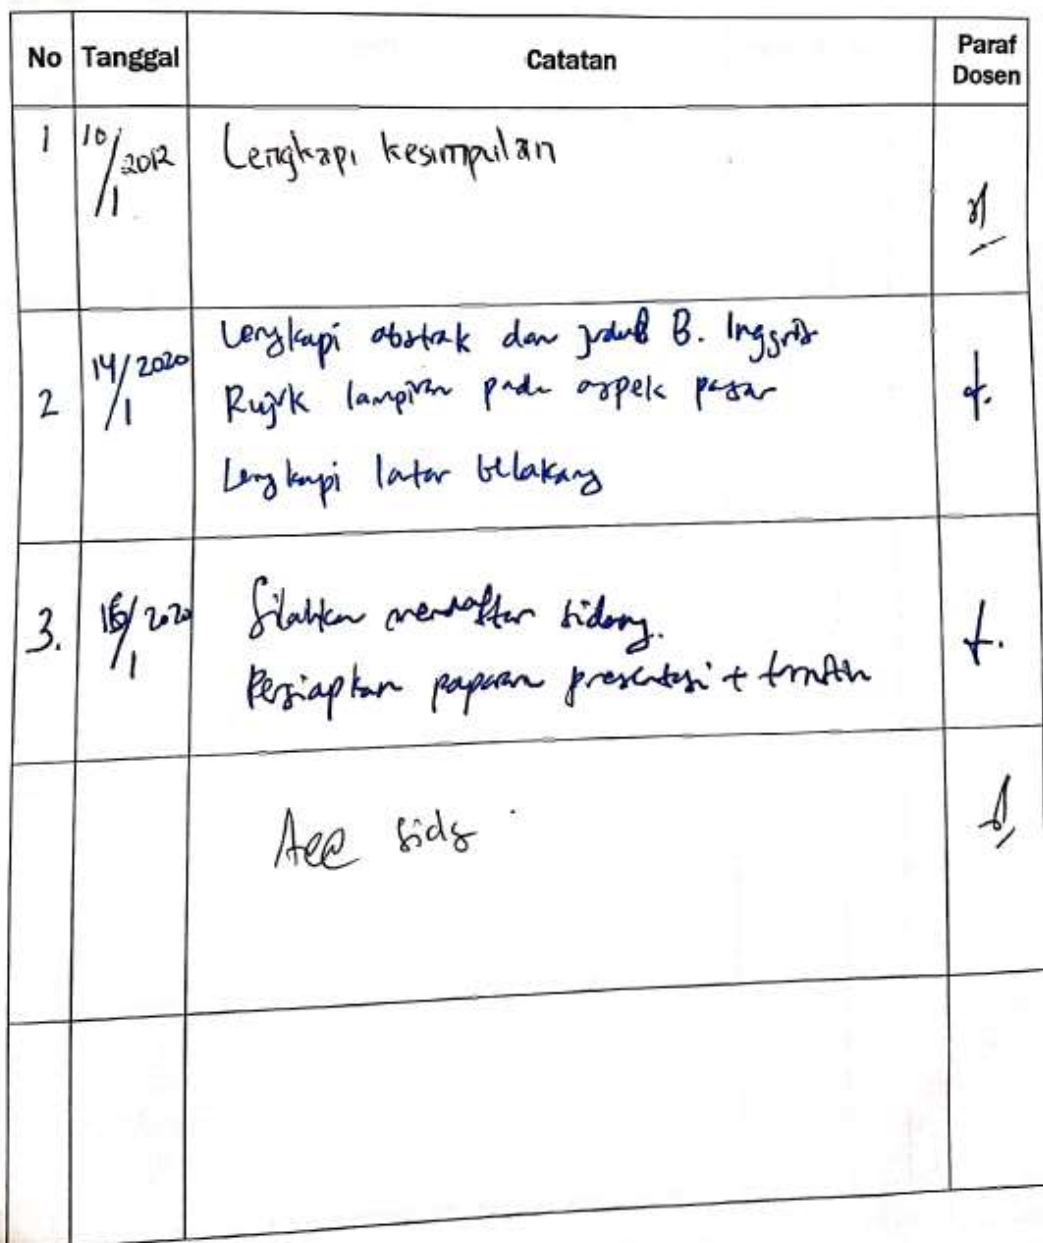 No Tanggal Catatan Paraf Dosen
1 10/1 2012 Lengkapi kesimpulan
2 14/1 2020 Lengkapi abstrak dan judul B. Inggris
Rujuk lampiran pada aspek pasar
Lengkapi latar belakang
3. /1 2020 Silahkan mendaftar sidang.
Persiapkan paparan presentasi +
Acc